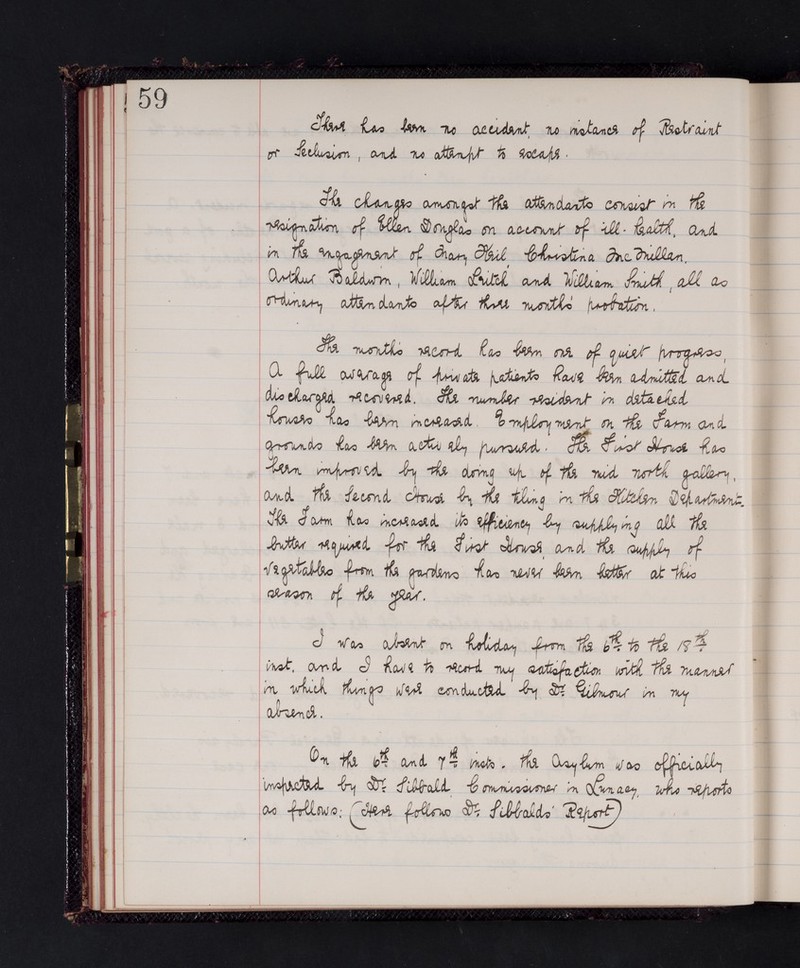 59
There has been no accident, no instance of Restraint
or Seclusion, and no attempt to escape.
The changes amongst the attendants consist in the
resignation of Ellen Douglas on account of ill-health, and
in the engagement of Mary Neil, Christina McMillan,
Arthur Baldwin, William Leitch and William Smith, all as
ordinary attendants after three months' probation.
The months record has been one of quiet progress,
A full average of private patients have been admitted and
discharged recovered. The number resident in detached
houses has been increased. Employment on the Farm and
grounds has been actively pursued. The First House has
been improved by the doing up of the mid north gallery,
and the Second House by the tiling in the Kitchen Department.
The Farm has increased its efficiency by supplying all the
butter required for the First House, and the supply of
vegetables from the gardens has never been better at this
season of the year.
I was absent on holiday from the 6th to the 18th
inst. and I have to record my satisfaction with the manner
in which things were conducted by Dr. Gilmour in my
absence.
On the 6th and 7th insts. the Asylum was officially
inspected by Dr. Sibbald, Commissioner in Lunacy, who reports
as follows: (Here follows Dr. Sibbalds' Report)